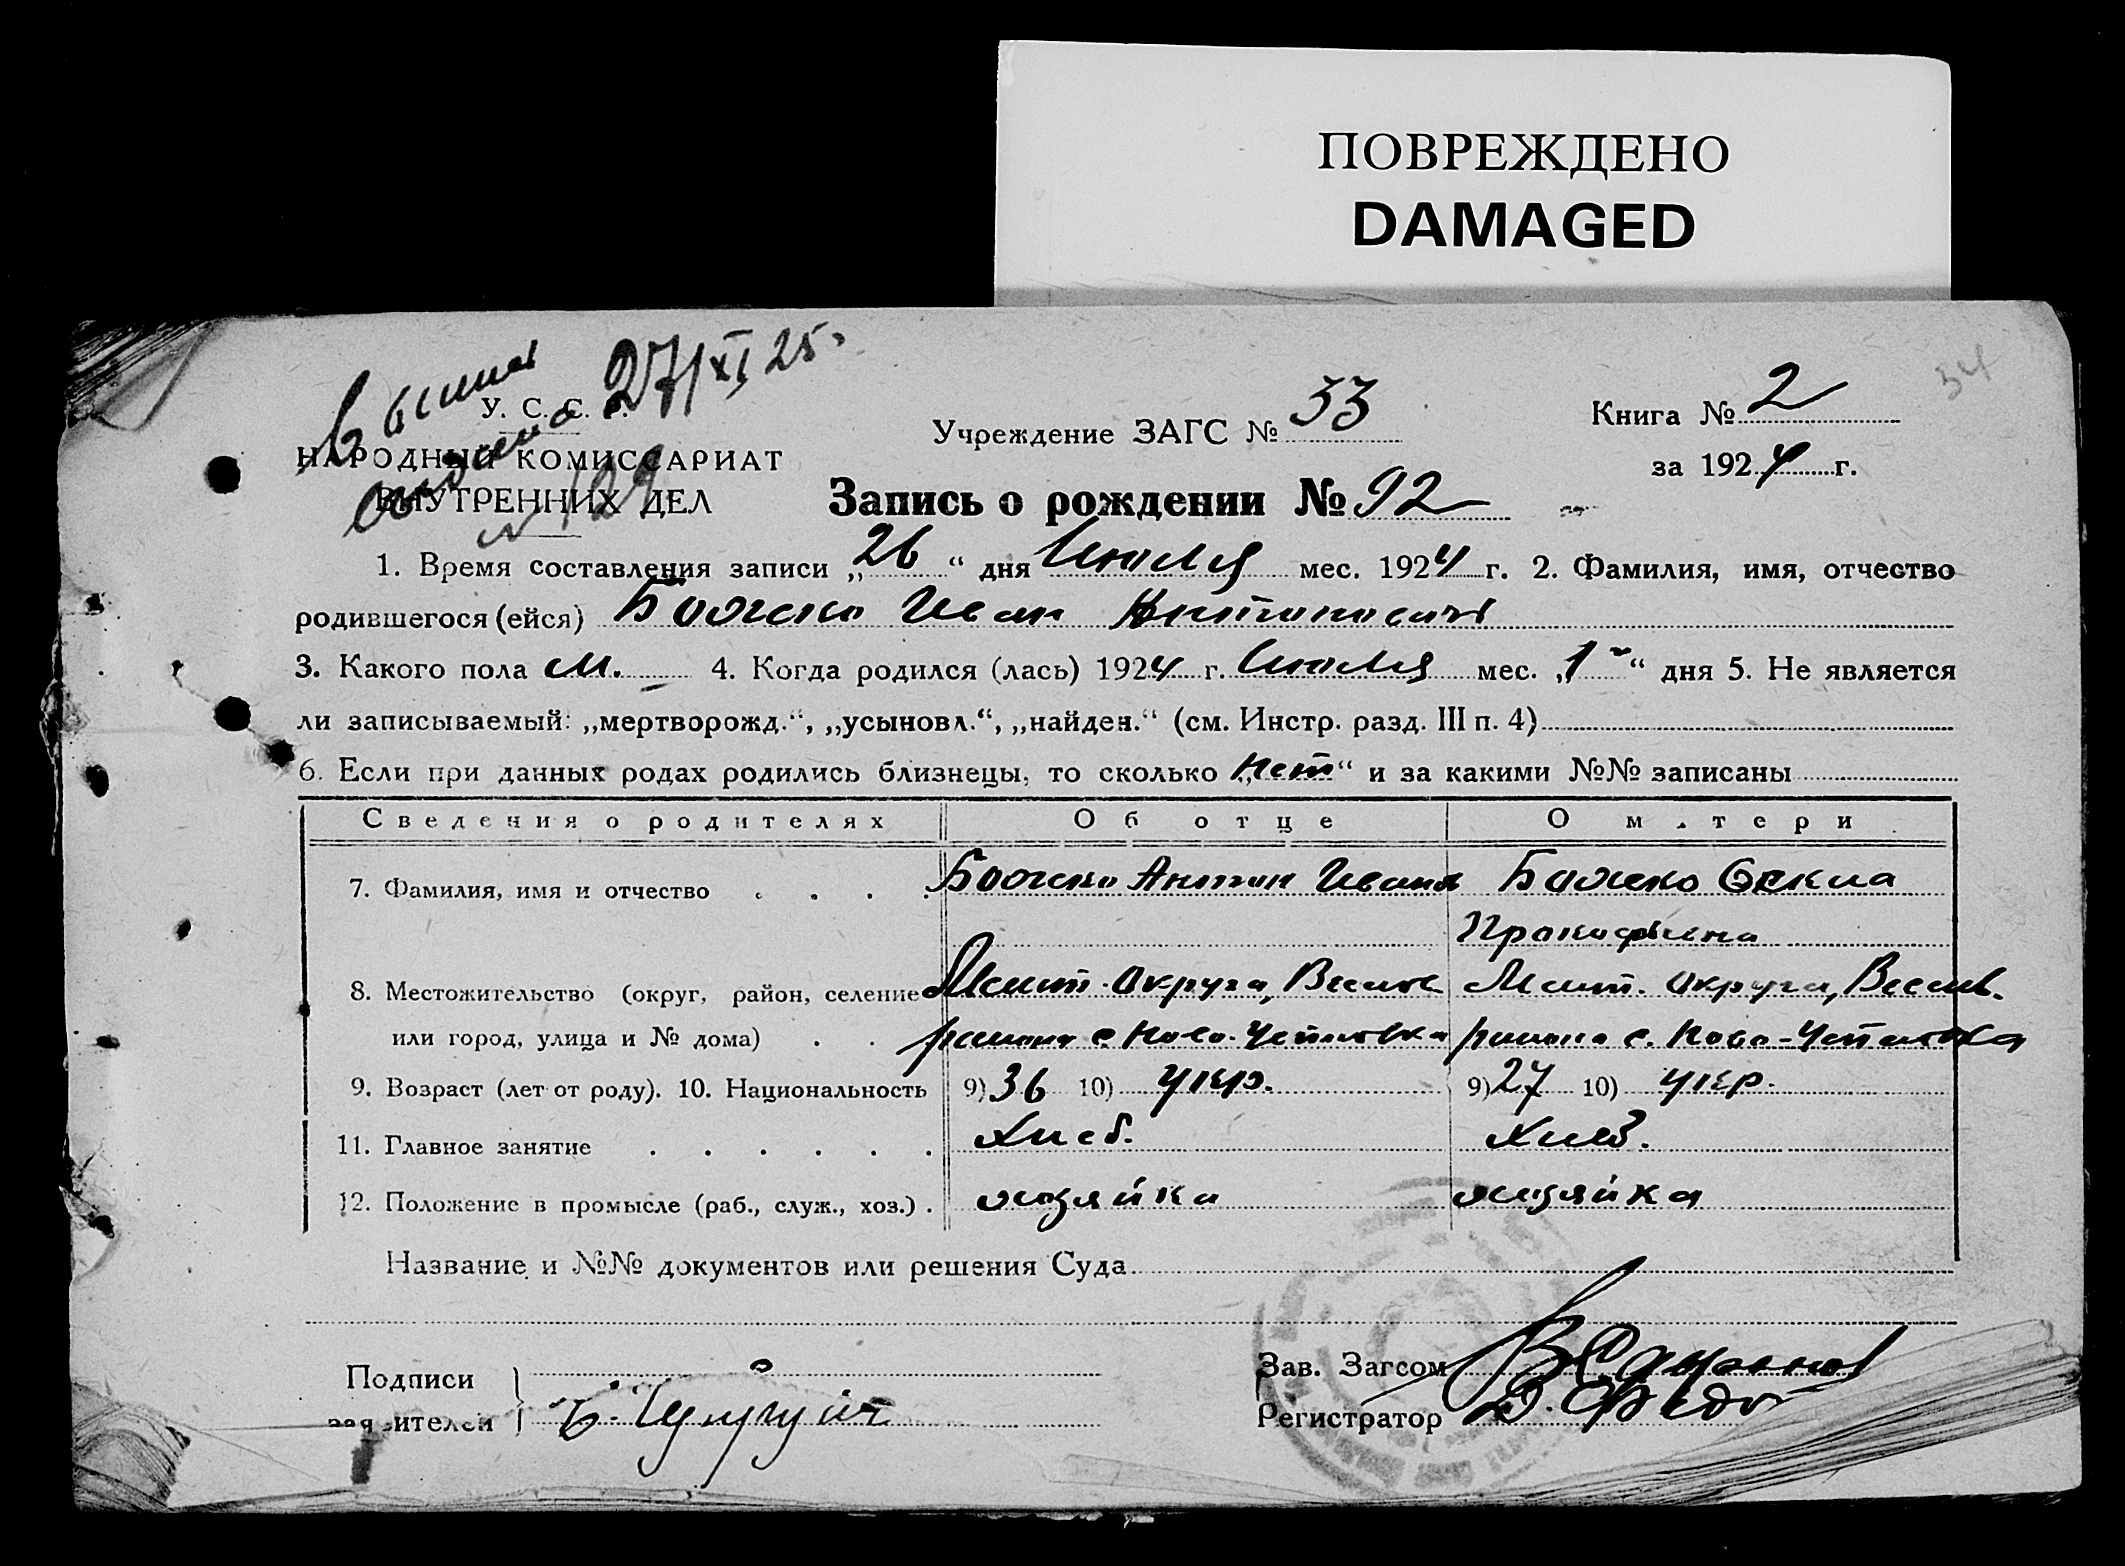 ПОВРЕЖДЕНО
DAMAGED
34
Выпись 27/XI 25.
выдана
№ 129
У. С. С. Р.
НАРОДНЫЙ КОМИССАРИАТ
ВНУТРЕННИХ ДЕЛ
Учреждение ЗАГС № 33
Книга № 2
за 1924 г.
Запись о рождении № 92
1. Время составления записи „26“ дня Июля мес. 1924 г. 2. Фамилия, имя, отчество
родившегося (ейся) Божко Иван Антонович
3. Какого пола м. 4. Когда родился (лась) 1924 г. Июля мес. „1“ дня 5. Не является
ли записываемый: „мертворожд.“, „усыновл.“, „найден.“ (см. Инстр. разд. III п. 4)
6. Если при данных родах родились близнецы, то сколько „нет“ и за какими №№ записаны
Сведения о родителях Об отце О матери
7. Фамилия, имя и отчество Божко Антон Иванов Божко Фекла
Прокофьевна
8. Местожительство (округ, район, селение Мелит. Округа, Весело Мелит. Округа, Весел.
или город, улица и № дома) района с. Ново-Успеновка района с. Ново-Успеновка
9. Возраст (лет от роду). 10. Национальность 9) 36 10) укр. 9) 27 10) укр.
11. Главное занятие Хлеб. Хлеб.
12. Положение в промысле (раб., служ., хоз.) хозяйка хозяйка
Название и №№ документов или решения Суда
Подписи
заявителей
Зав. Загсом
Регистратор